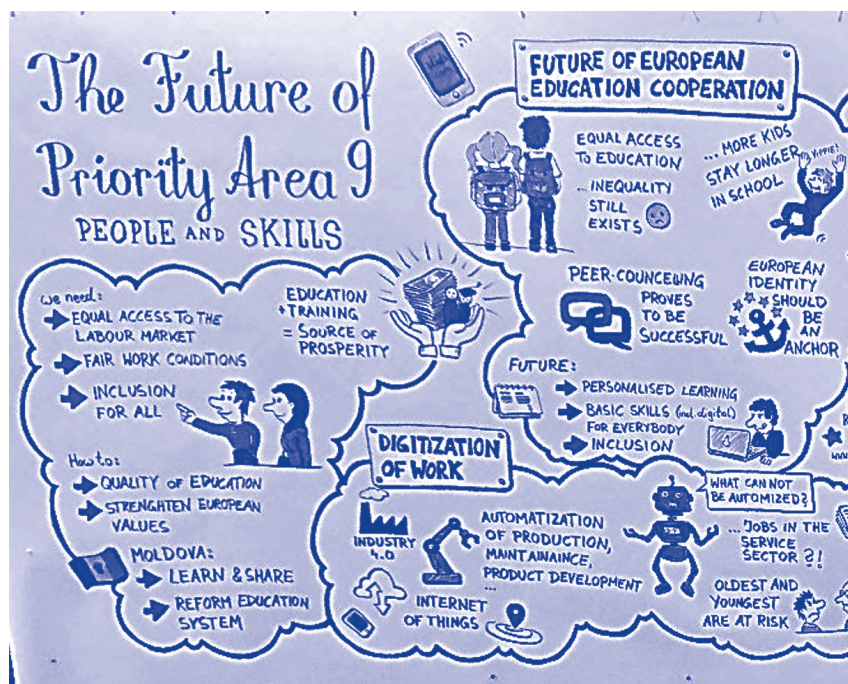 The Future of
Priority Area 9
PEOPLE AND SKILLS
we need:
EQUAL ACCESS TO THE
LABOUR MARKET
FAIR WORK CONDITIONS
INCLUSION
FOR ALL
EDUCATION
+ TRAINING
= SOURCE OF
PROSPERITY
How to:
QUALITY OF EDUCATION
STRENGHTEN EUROPEAN
VALUES
MOLDOVA:
LEARN & SHARE
REFORM EDUCATION
SYSTEM
FUTURE OF EUROPEAN
EDUCATION COOPERATION
EQUAL ACCESS
TO EDUCATION
... INEQUALITY
STILL
EXISTS
... MORE KIDS
STAY LONGER
IN SCHOOL
YIPPIE!
PEER-COUNCELLING
PROVES
TO BE
SUCCESSFUL
EUROPEAN
IDENTITY
SHOULD
BE
AN
ANCHOR
FUTURE:
PERSONALISED LEARNING
BASIC SKILLS (incl. digital)
FOR EVERYBODY
INCLUSION
DIGITIZATION
OF WORK
INDUSTRY
4.0
AUTOMATIZATION
OF PRODUCTION,
MAINTAINANCE,
PRODUCT DEVELOPMENT
...
INTERNET
OF THINGS
WHAT CAN NOT
BE AUTOMIZED?
... JOBS IN THE
SERVICE
SECTOR ?!
OLDEST AND
YOUNGEST
ARE AT RISK